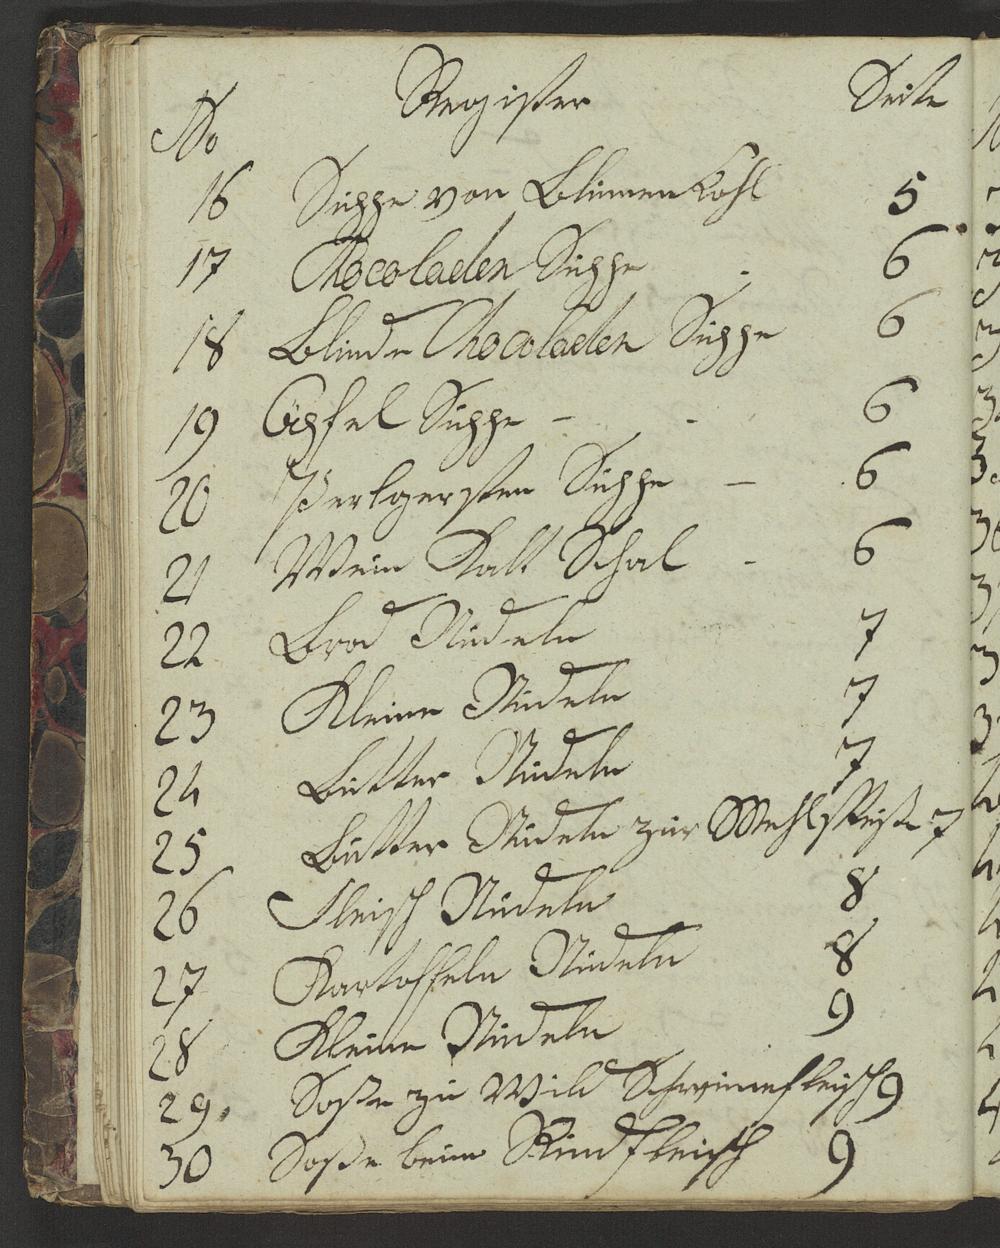 No Register Seite
16 Suppe von Blumen Kohl 5
17 Chocoladen Suppe 6
18 Blinde Chocoladen Suppe 6
19 Äpfel Suppe - - 6
20 Perlgersten Suppe - 6
21 Wein Kalt Schal - 6
22 Brod Nudeln 7
23 Kleine Nudeln 7
24 Butter Nudeln 7
25 Butter Nudeln zur Mehlspeise 7
26 Fleisch Nudeln 8
27 Kartoffeln Nudeln 8
28 Kleine Nudeln 9
29. Soße zu Wild Schweinefleisch 9
30 Soße beim Rindfleisch 9